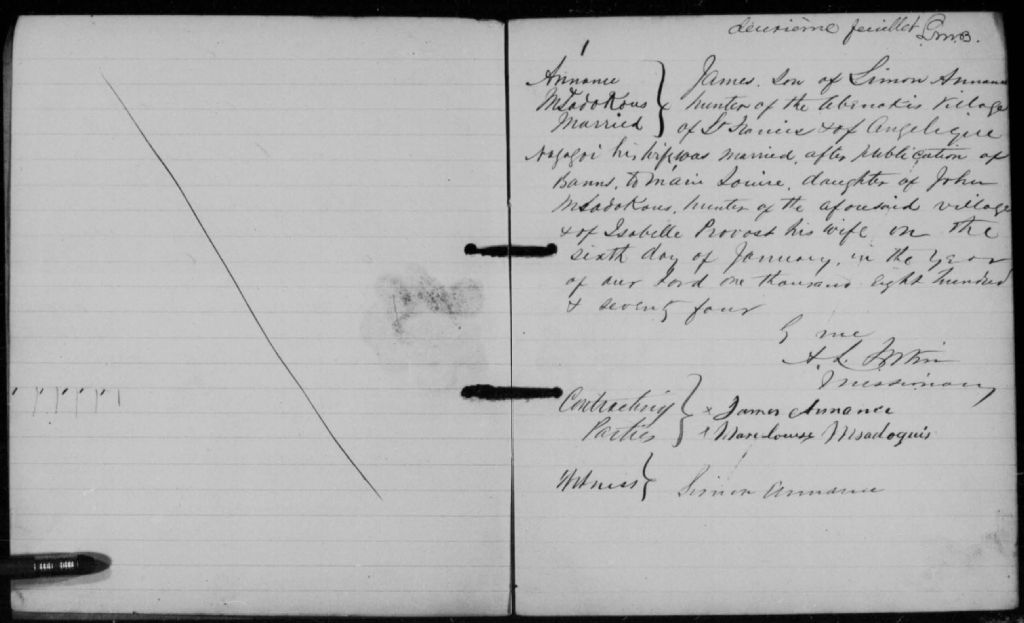 deuxième feuillet
1
Annance
& Msadokous
Married
James, son of Simon Annance
hunter of the Abenakis Village
of St Francis & of Angelique
his wife, was married, after publication of
Banns, to Marie Louise, daughter of John
Msadokous, hunter of the aforesaid village
& of Isabelle Provost his wife, on the
sixth day of January, in the year
of our Lord one thousand eight hundred
& seventy four
By me
A. L.
Missionary
Contracting
Parties
x James Annance
x Marie Louise Msadoquis
Witness
Simon Annance